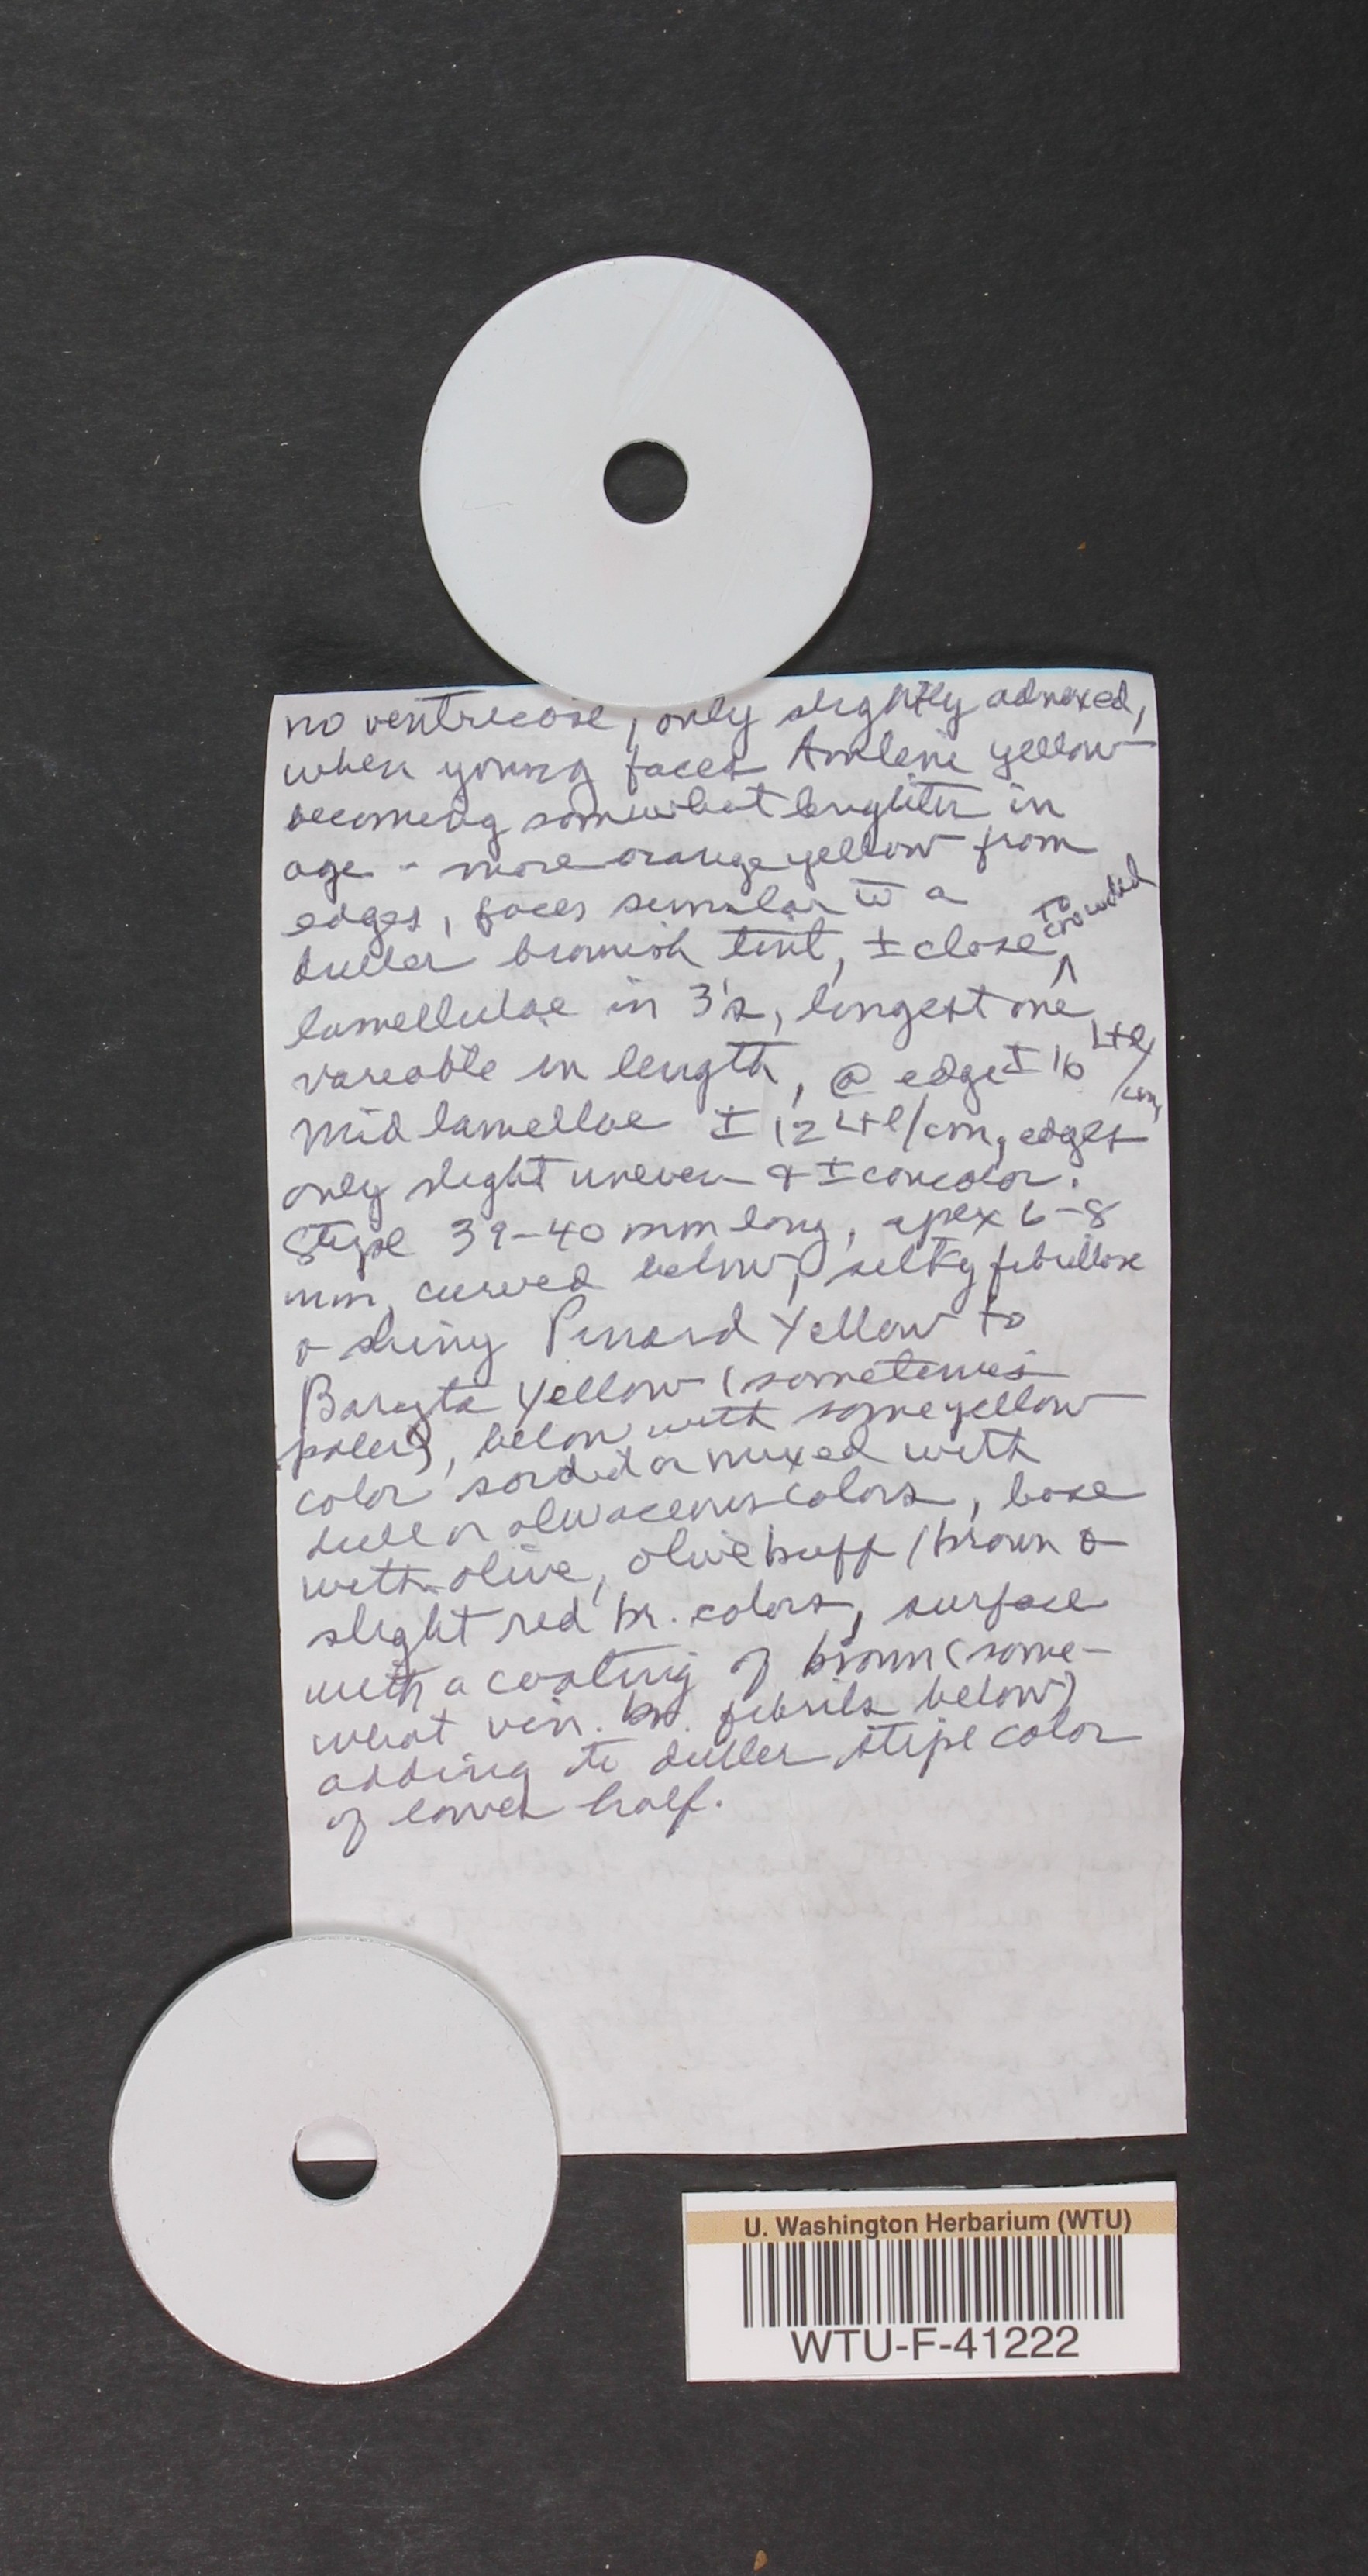 no ventricose, only slightly adnexed,
when young faces Aniline yellow
becoming somewhat brighter in
age - more orange yellow from
edges, faces similar w a
duller brownish tint, ± close to crowded
lamellulae in 3's, longest one
variable in length, @ edge ± 16 L+l/cm,
mid lamellae ± 12 L+l/cm, edges
only slight uneven & ± concolor.
Stipe 39-40 mm long, apex 6-8
mm, curved below, silky fibrillose
& shiny Pinard Yellow to
Baryta Yellow (sometimes
paler), below with some yellow
color sordid or mixed with
dull or olivaceous colors, base
with olive, olive buff / brown &
slight red br. colors, surface
with a coating of brown (some-
what vin. br. fibrils below)
adding to duller stipe color
of lower half.
U. Washington Herbarium (WTU)
WTU-F-41222